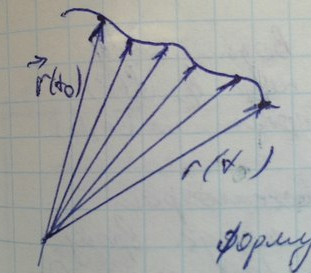 r⃗(t₀)
r(t )
форму